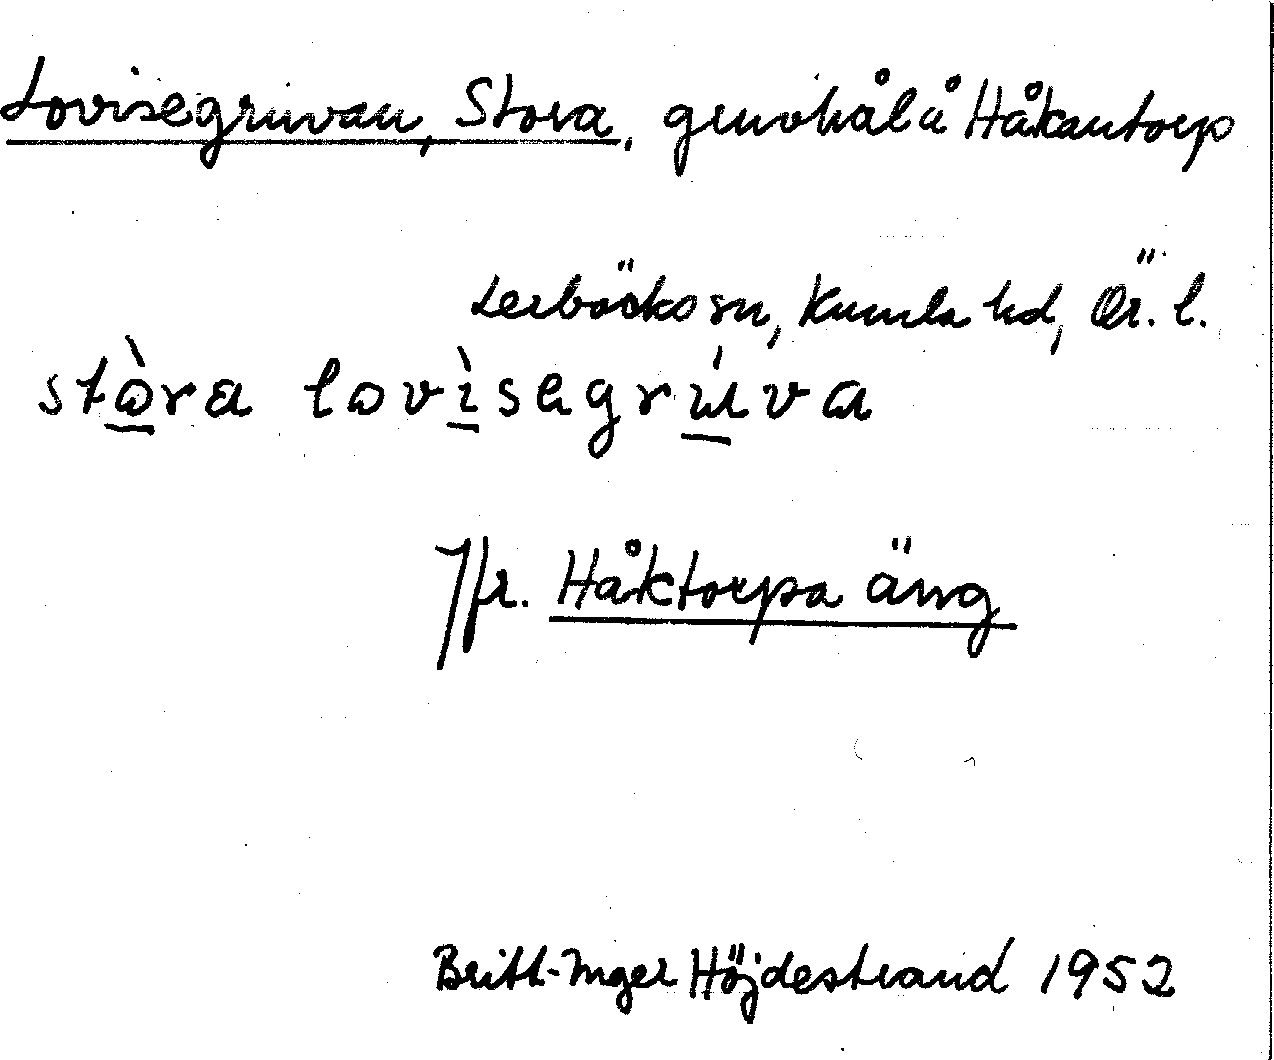 Lovisegruvan, Stora, gruvhål å Håkantorp
Lerbäcks sn, Kumla hd, Ör. l.
stò̲ra lovì̲segrú̲va
Jfr. Håktorpa äng
Britt-Inger Höjdestrand 1952